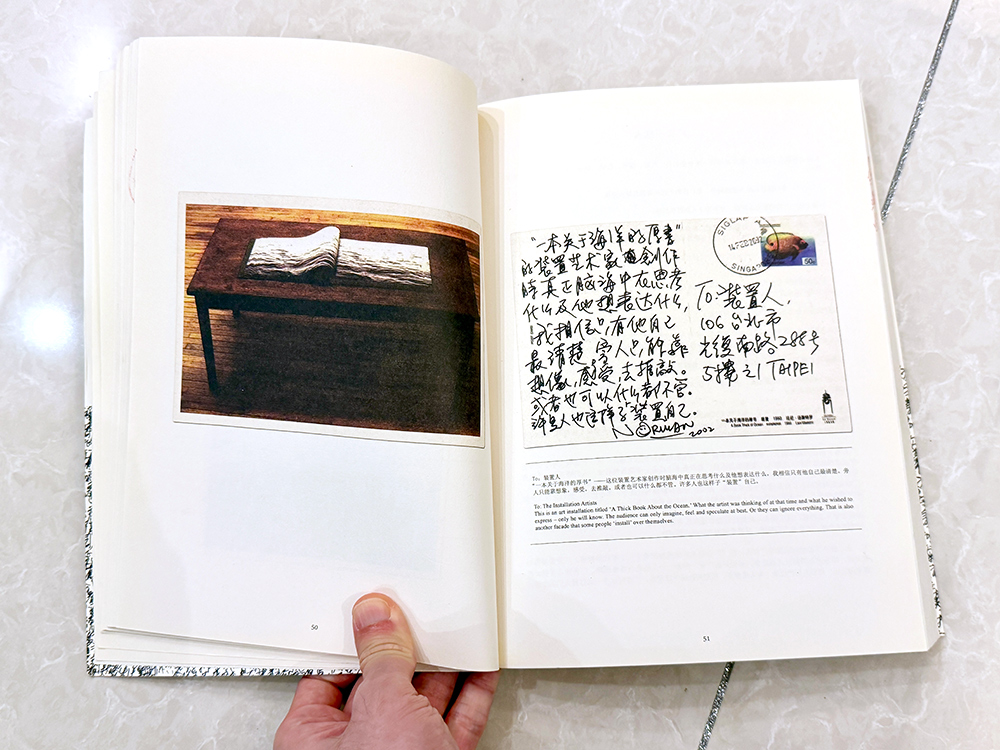 50
"一本关于海洋的厚书"
的装置艺术家 创作
时真正脑海中在思考
什么及他想表达什么,
我相信只有他自己
最清楚。旁人只能靠
想像,感受,去推敲。
或者也可以什么都不管。
许多人也这样子"装置"自己。
2002
SIGLAP
14 FEB 2002
SINGA
50c
To: 装置人,
106 台北市
光復南路288号
5楼之1 TAIPEI
一本关于海洋的厚书 装置 1993
A Book Thick of Ocean Installation 1993
To: 装置人
“一本关于海洋的厚书”——这位装置艺术家创作时脑海中真正在思考什么及他想表达什么,我相信只有他自己最清楚。旁
人只能靠想象、感受、去推敲,或者也可以什么都不管。许多人也这样子“装置”自己。
To: The Installation Artists
This is an art installation titled ‘A Thick Book About the Ocean.’ What the artist was thinking of at that time and what he wished to
express – only he will know. The audience can only imagine, feel and speculate at best. Or they can ignore everything. That is also
another facade that some people ‘install’ over themselves.
51